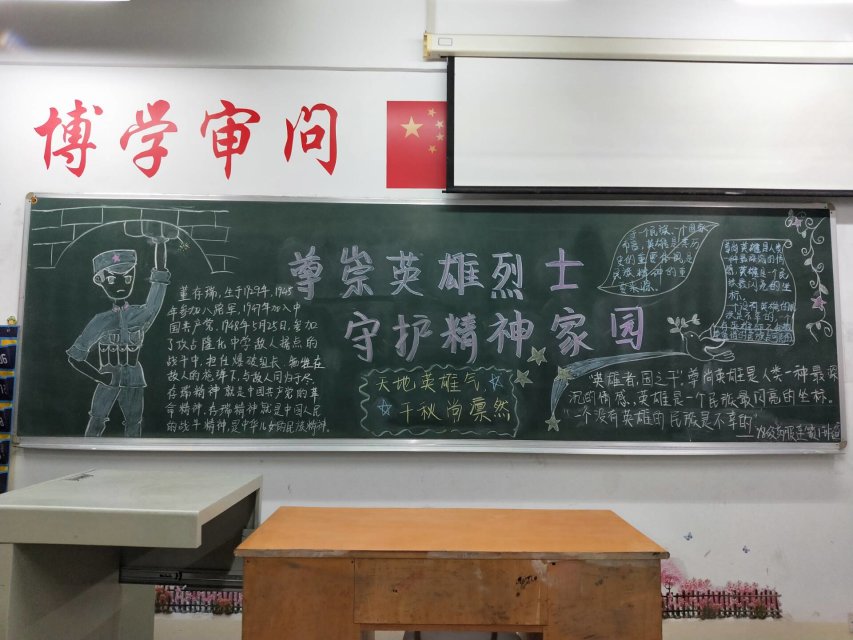 博学审问
尊崇英雄烈士
守护精神家园
董存瑞,生于1929年,1945
年参加八路军,1947年加入中
国共产党,1948年5月25日,参加
了攻占隆化中学敌人据点的
战斗中,担任爆破组长,牺牲在
敌人的炮楼下,与敌人同归于尽
存瑞精神就是中国共产党的革
命精神,存瑞精神就是中国人民
的战斗精神,是中华儿女的民族精神.
天地英雄气
千秋尚凛然
一个民族、一个国家
英雄是其历
史的重要
民族精神的重
尚英雄是人类
最深沉的情
感,英雄是一个民
族最闪亮的坐
标.
"英雄者,国之干",尊尚英雄是人类一种最深
沉的情感,英雄是一个民族最闪亮的坐标。
一个没有英雄的民族是不幸的